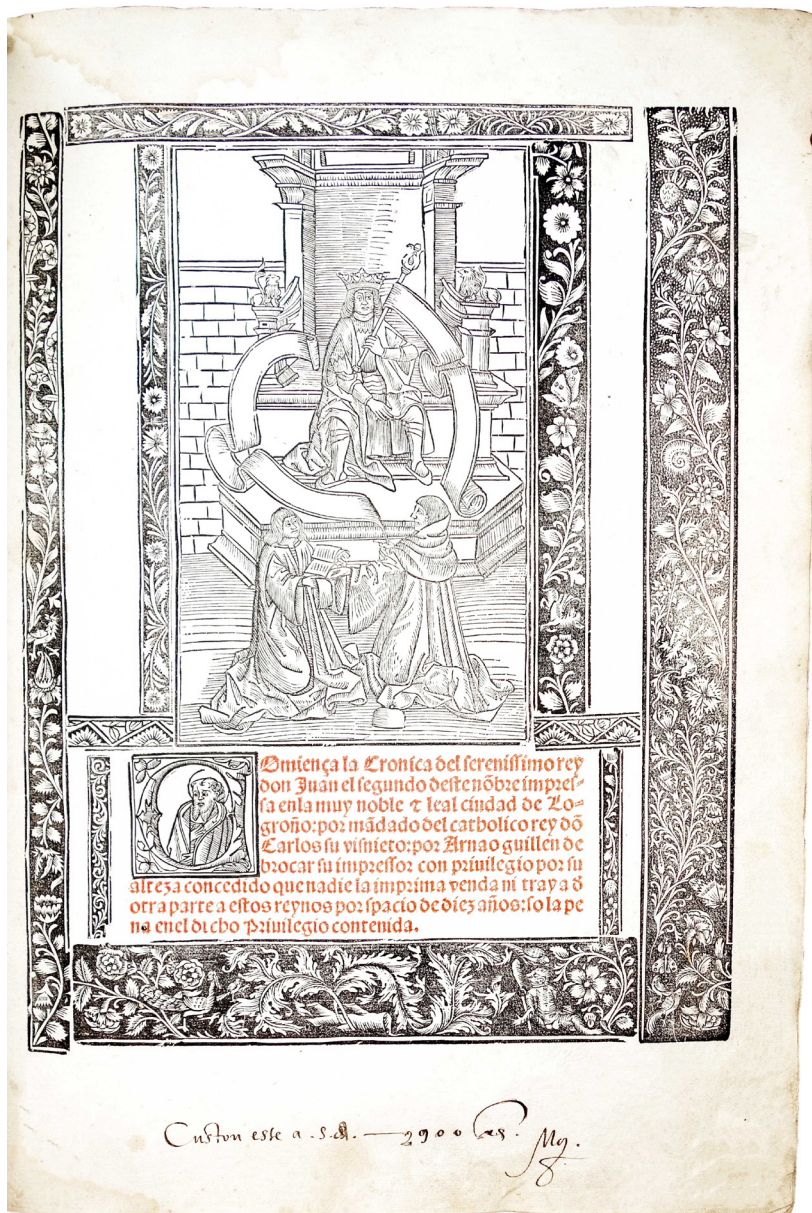 Comiença la Cronica del serenissimo rey
don Juan el segundo deste nõbre impres-
sa enla muy noble ⁊ leal ciudad de Lo-
groño: por mãdado del catholico rey dõ
Carlos su visnieto: por Arnao guillen de
brocar su impressor con priuilegio por su
alteza concedido que nadie la imprima venda ni traya d̕
otra parte a estos reynos por spacio de diez años: so la pe
na enel dicho Priuilegio contenida.
este a . s. 2900